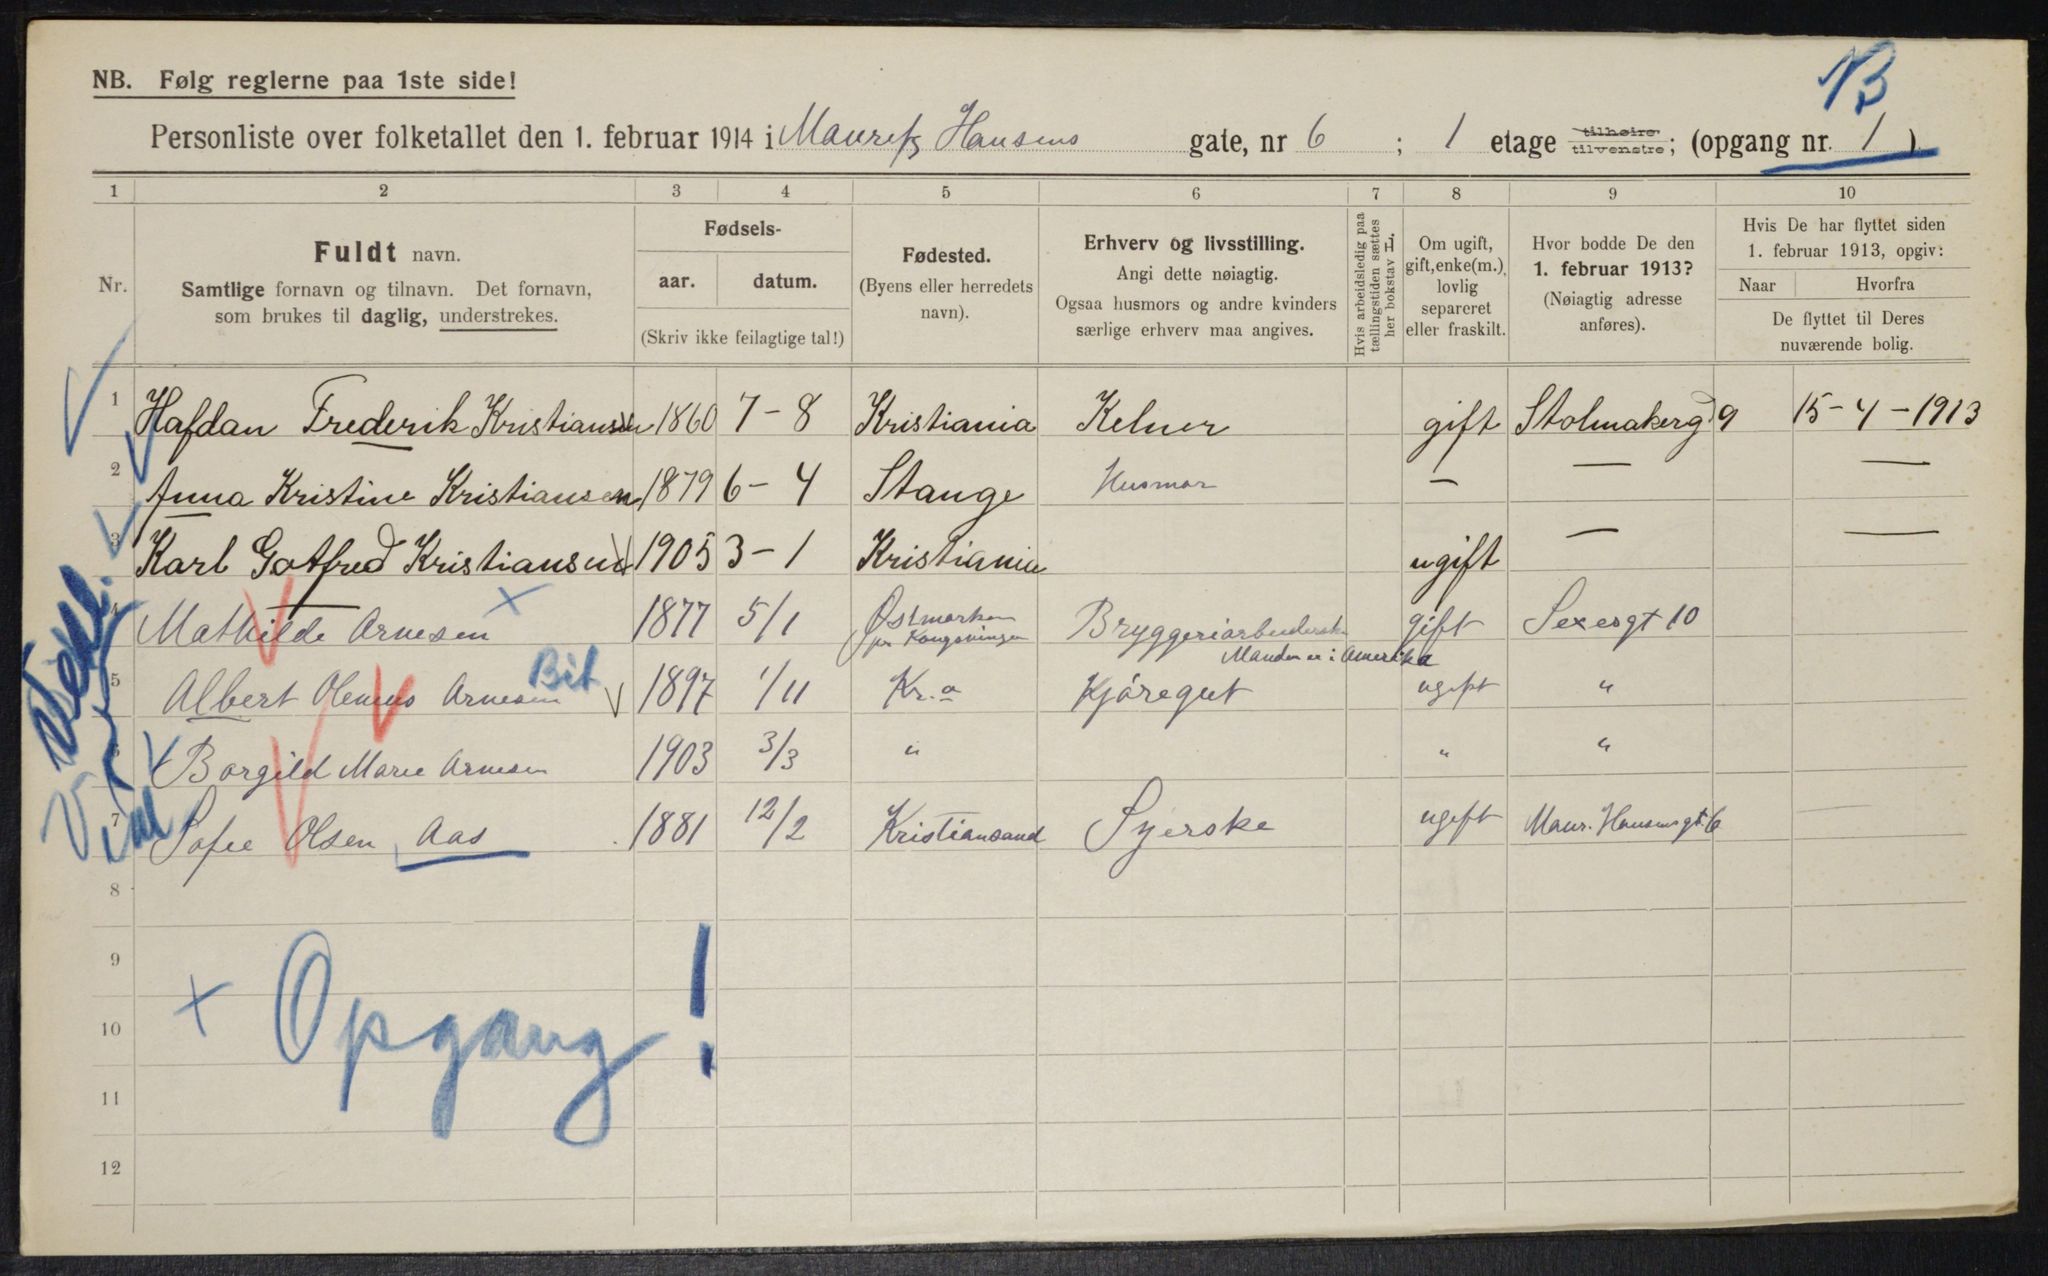 NB. Følg reglerne paa 1ste side!
NB
Personliste over folketallet den 1. februar 1914 i Mauritz Hansens gate, nr 6 ; 1 etage tilhøire tilvenstre; (opgang nr. 1 )
1 2 3 4 5 6 7 8 9 10
Nr.
Fuldt navn.
Samtlige fornavn og tilnavn. Det fornavn,
som brukes til daglig, understrekes.
Fødsels-
aar. datum.
(Skriv ikke feilagtige tal!)
Fødested.
(Byens eller herredets
navn).
Erhverv og livsstilling.
Angi dette nøiagtig.
Ogsaa husmors og andre kvinders
særlige erhverv maa angives.
Hvis arbeidsledig paa
tællingstiden sættes
her bokstav L.
Om ugift,
gift, enke(m.),
lovlig
separeret
eller fraskilt.
Hvor bodde De den
1. februar 1913?
(Nøiagtig adresse
anføres).
Hvis De har flyttet siden
1. februar 1913, opgiv:
Naar Hvorfra
De flyttet til Deres
nuværende bolig.
1 Hafdan Frederik Kristiansen 1860 7-8 Kristiania Kelner gift Stolmakergd 9 15-4-1913
2 Anna Kristine Kristiansen 1879 6-4 Stange Husmor — — —
3 Karl Gotfred Kristiansen 1905 3-1 Kristiania ugift — —
4 Mathilde Arnesen × 1877 5/1 Østmarken pr Kongsvinger Bryggeriarbeiderske gift Sexesgt 10
Manden er i Amerika
5 Albert Olenius Arnesen Bit 1897 1/11 Kr.a Kjöregut ugift "
6 Borgild Marie Arnesen 1903 3/3 " " "
7 Sofie Olsen, Aas 1881 12/2 Kristiansand Syerske ugift Maur. Hansensgt. 6 —
8
9
10
11
12
× Opgang!